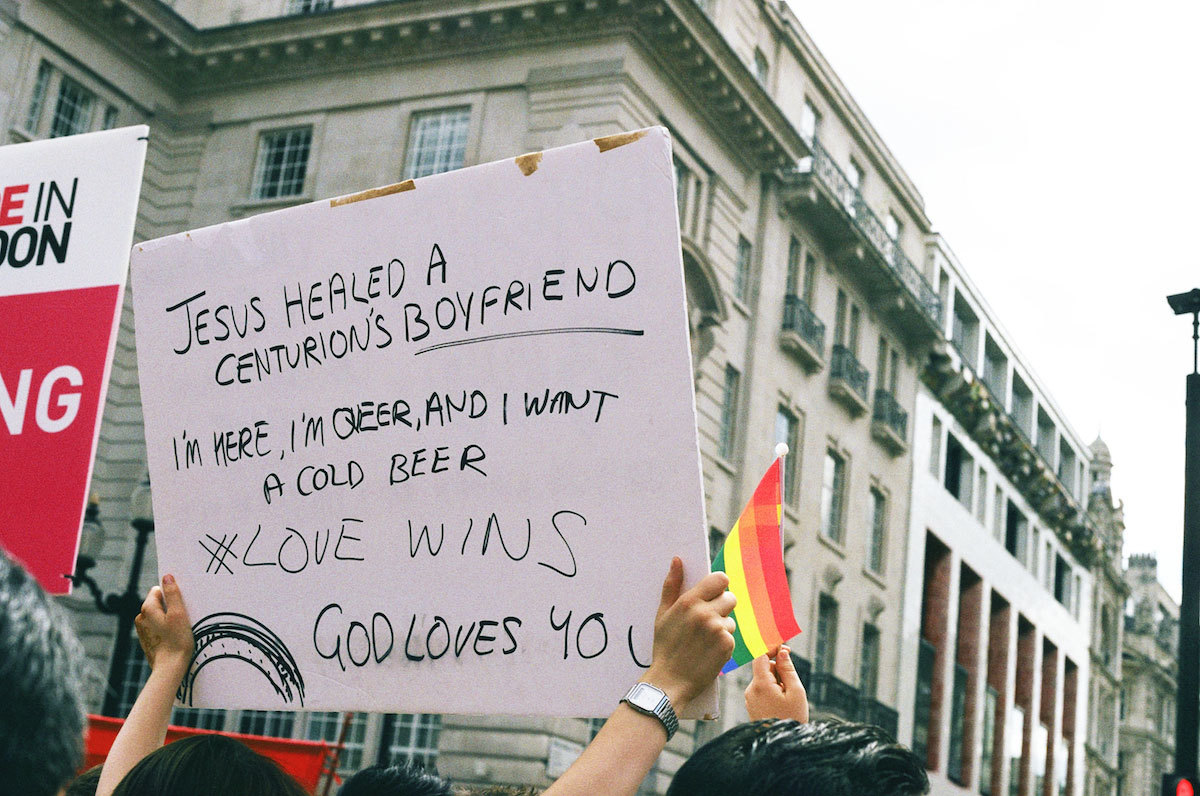 E IN
DON
NG
JESUS HEALED A
CENTURION'S BOYFRIEND
I'M HERE, I'M QUEER, AND I WANT
A COLD BEER
#LOVE WINS
GOD LOVES YOU